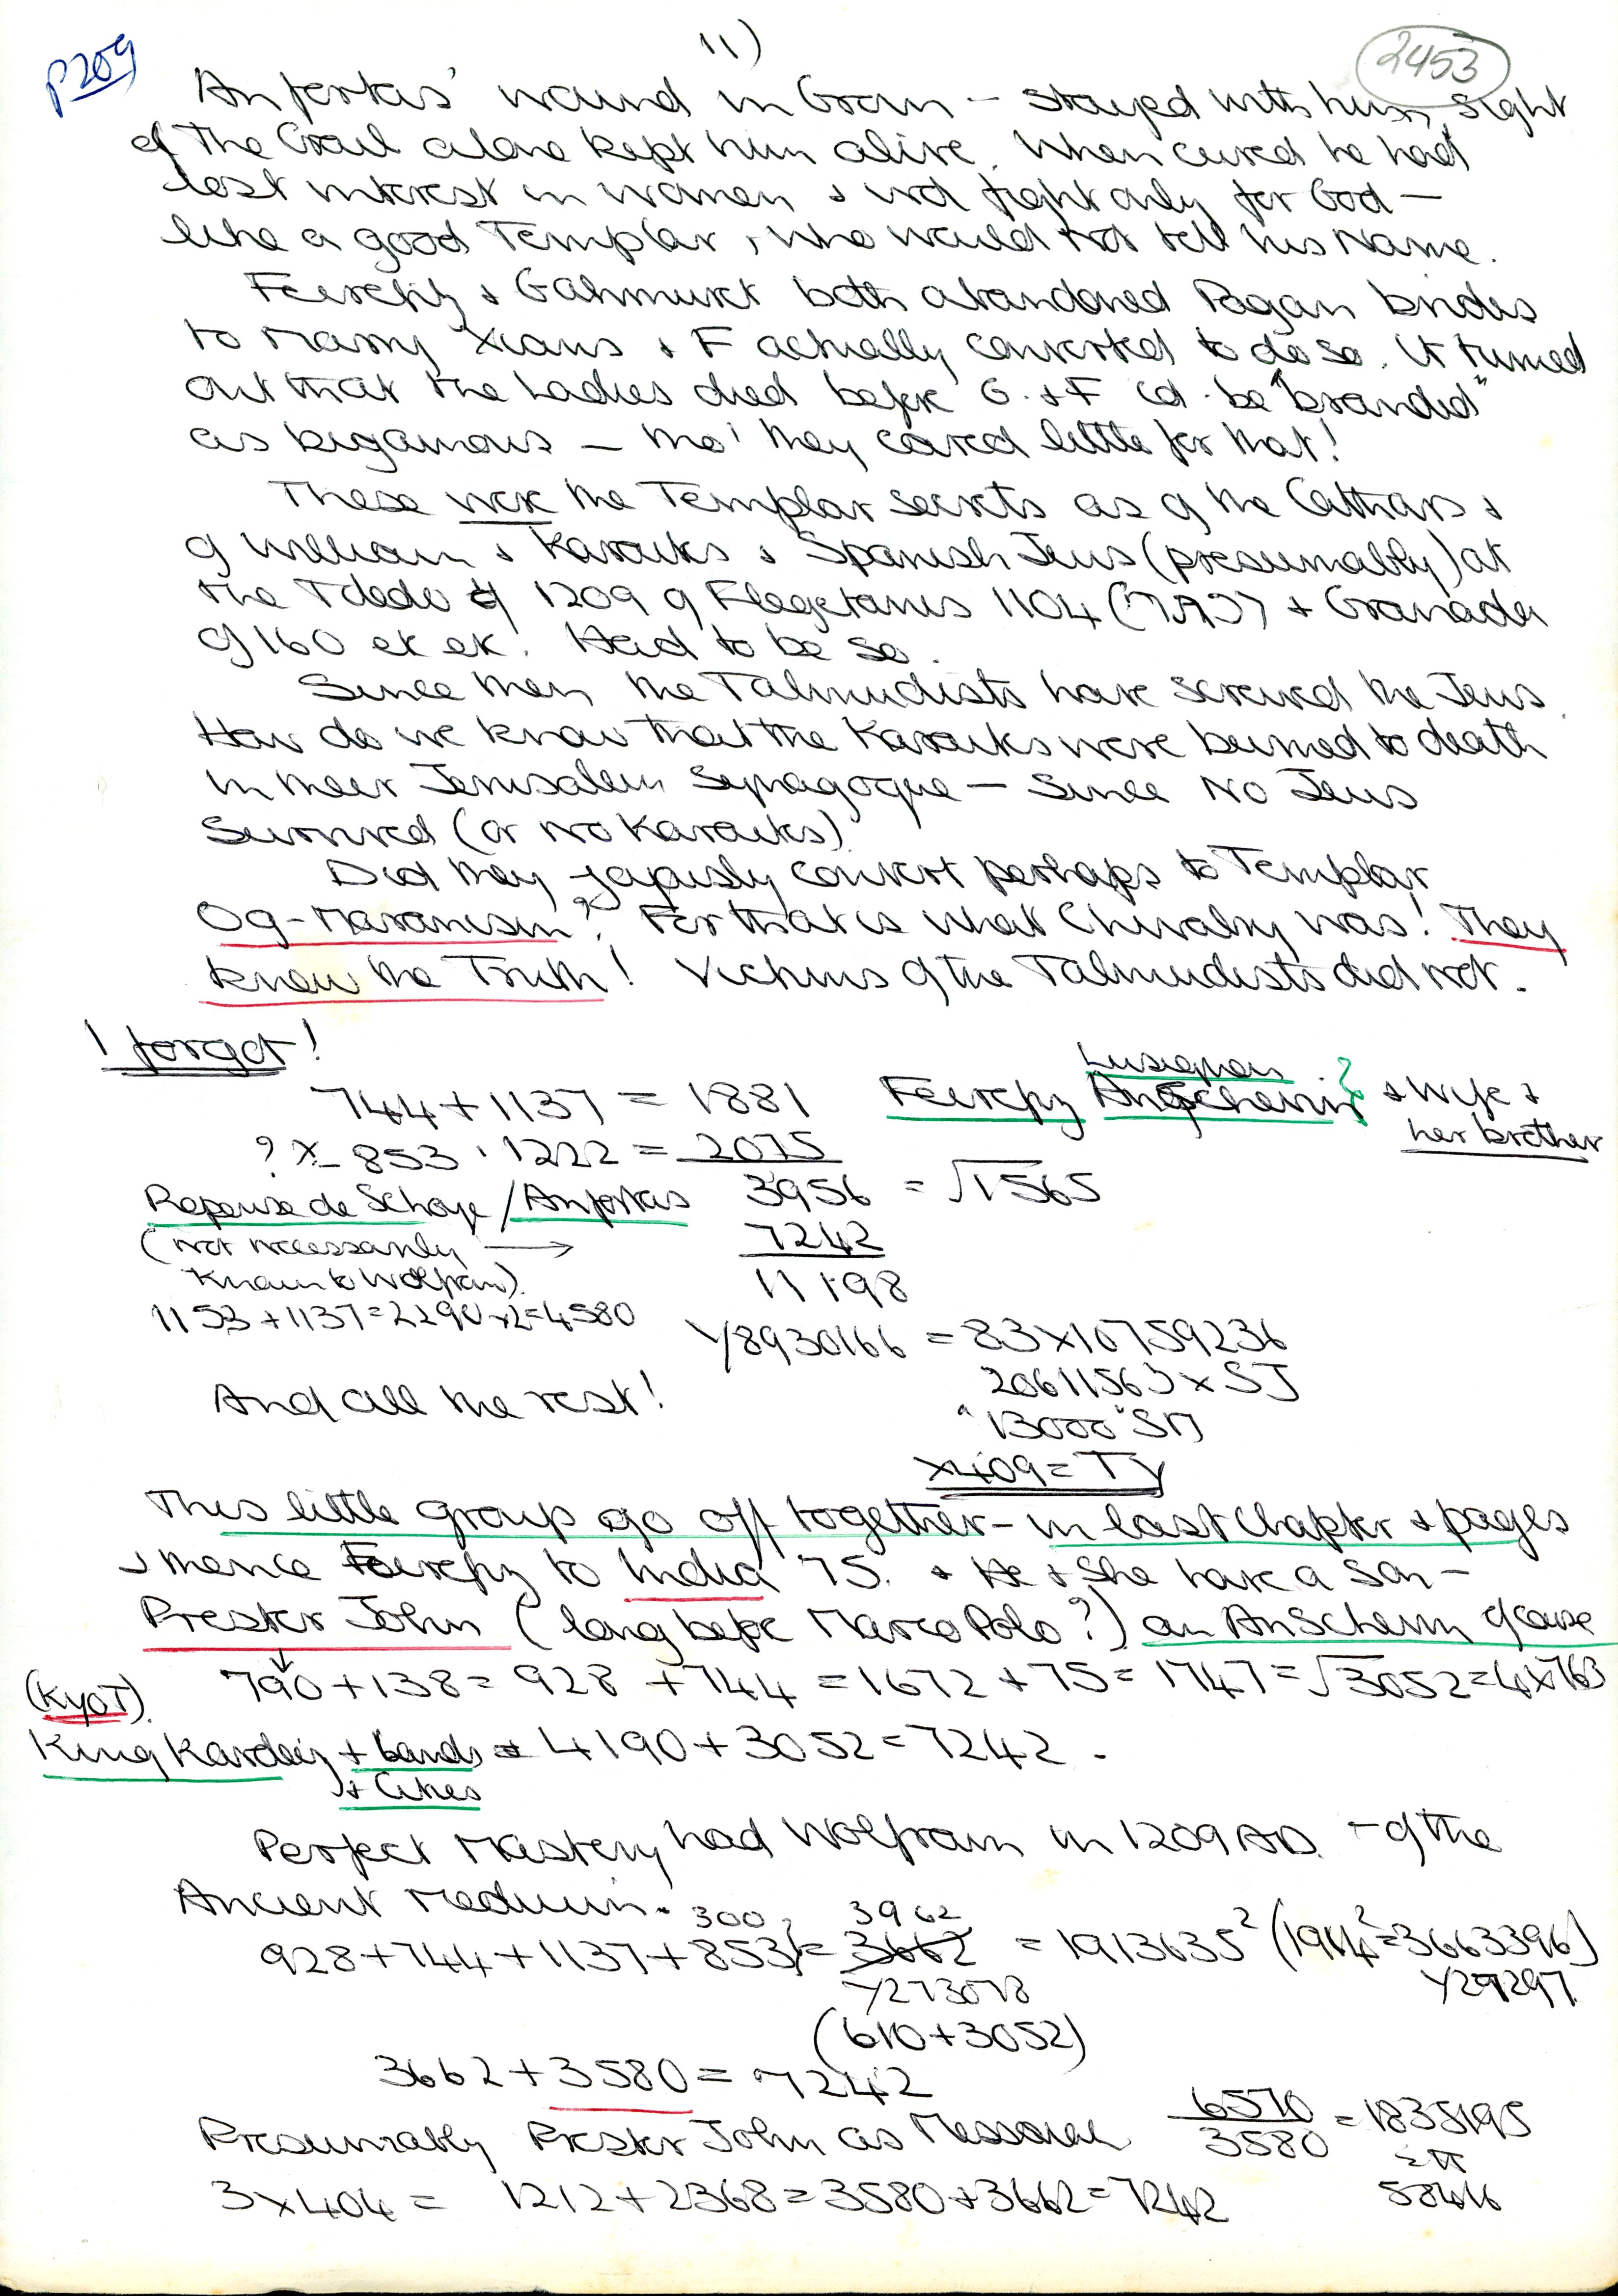 p209
11)
2453
Anfortas' wound in Groin – stayed with him, sight
of the Grail alone kept him alive. When cured he had
lost interest in women & wd fight only for God —
like a good Templar, who would not tell his Name.
Feirefiz & Gahmuret both abandoned Pagan brides
to marry Xians & F actually converted to do so. It turned
out that the Ladies died before G. & F cd. be "branded"
as bigamous – tho' they cared little for that!
These were the Templar secrets as of the Cathars &
of William & Karaites & Spanish Jews (presumably) at
the Toledo of 1209 of Flegetanis 1104 & Granada
of 160 et et. Had to be so.
Since then the Talmudists have screwed the Jews.
How do we know that the Karaites were burned to death
in their Jerusalem Synagogue – Since No Jews
Survived (or no Karaites)
Did they convert perhaps to Templar
Og-Maranism? For that is what Chivalry was! They
knew the Truth! Victims of the Talmudists did not.
I forgot!
744 + 1137 = 1881 Feirefiz Anschevin & Wife &
Lusignan ?
her brother
? x 853 . 1222 = 2075
Repanse de Schoye / Anfortas 3956 = √1565
(not necessarily → 7242
Known to Wolfram). 11198
1153 + 1137 = 2290 x 2 = 4580
Y8930166 = 83 x 10759236
20611563 x SJ
And all the rest!
"13000" SM
x409 = TY
This little group go off together – in last chapter & pages
& thence Feirefiz to India 75. & He & She have a Son –
Prester John (long before Marco Polo?) an Anschevin of course
790 + 138 = 928 + 744 = 1672 + 75 = 1747 = √3052 = 4 x 763
(KYOT).
King Kardeiz + lands = 4190 + 3052 = 7242 .
+ Cities
Perfect Mastery had Wolfram in 1209 AD. – of the
Ancient Medium.
300? 3962
928 + 744 + 1137 + 853 = 3662 = 1913635² (1914² = 3663396)
Y273078 Y27297
(610 + 3052)
3662 + 3580 = 7242
Presumably Prester John as 6570 = 1835195
3580
3 x 404 = 1212 + 2368 = 3580 + 3662 = 7242